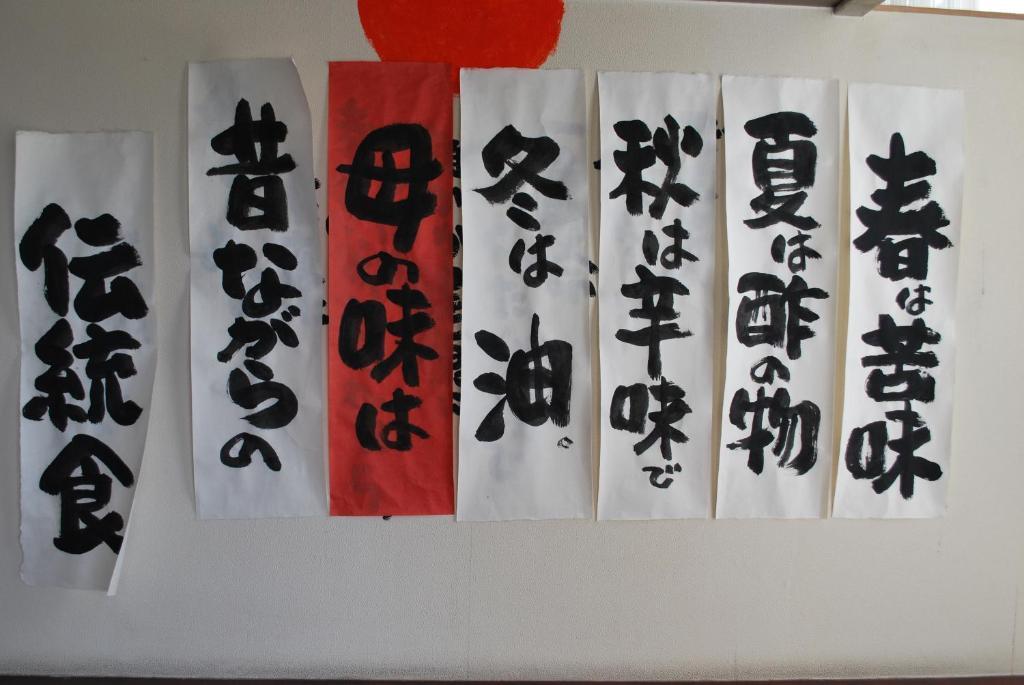 春は苦味
夏は酢の物
秋は辛味で
冬は油。
母の味は
昔ながらの
伝統食